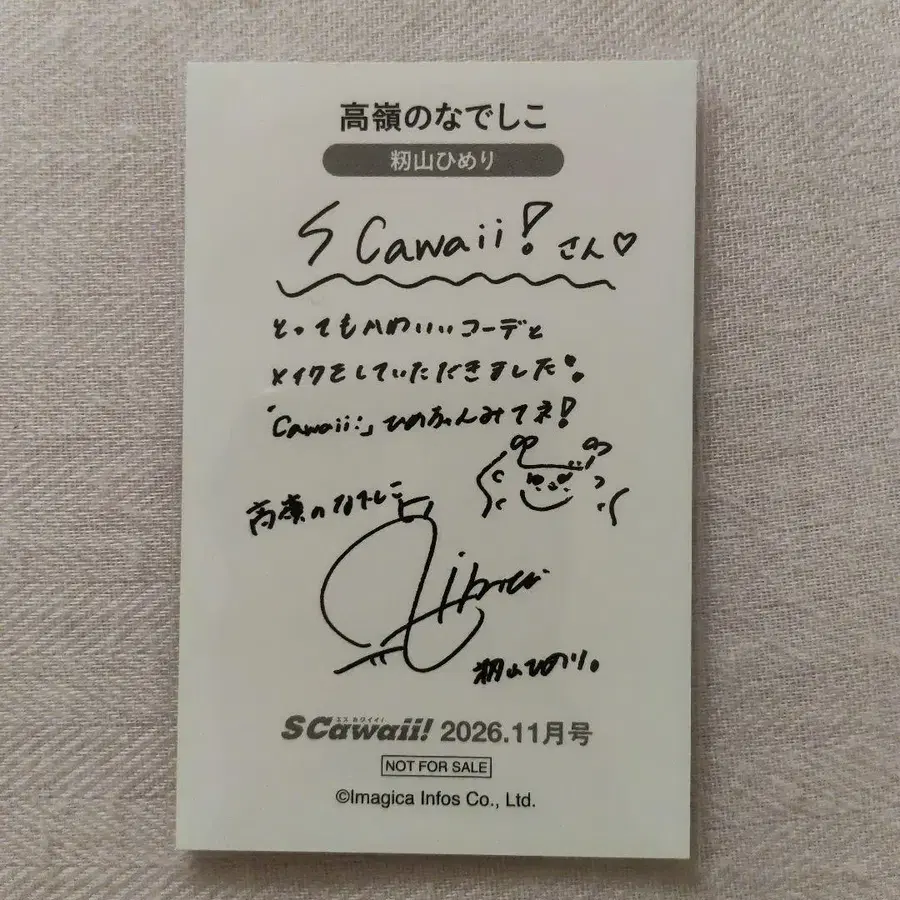 高嶺のなでしこ
籾山ひめり
S Cawaii! さん♡
とってもかわいいコーデと
メイクをしていただきました
「Cawaii!」ひめふぁんみてネ!
高嶺のなでしこ
籾山ひめり。
エス カワイイ!
SCawaii! 2026.11月号
NOT FOR SALE
©Imagica Infos Co., Ltd.